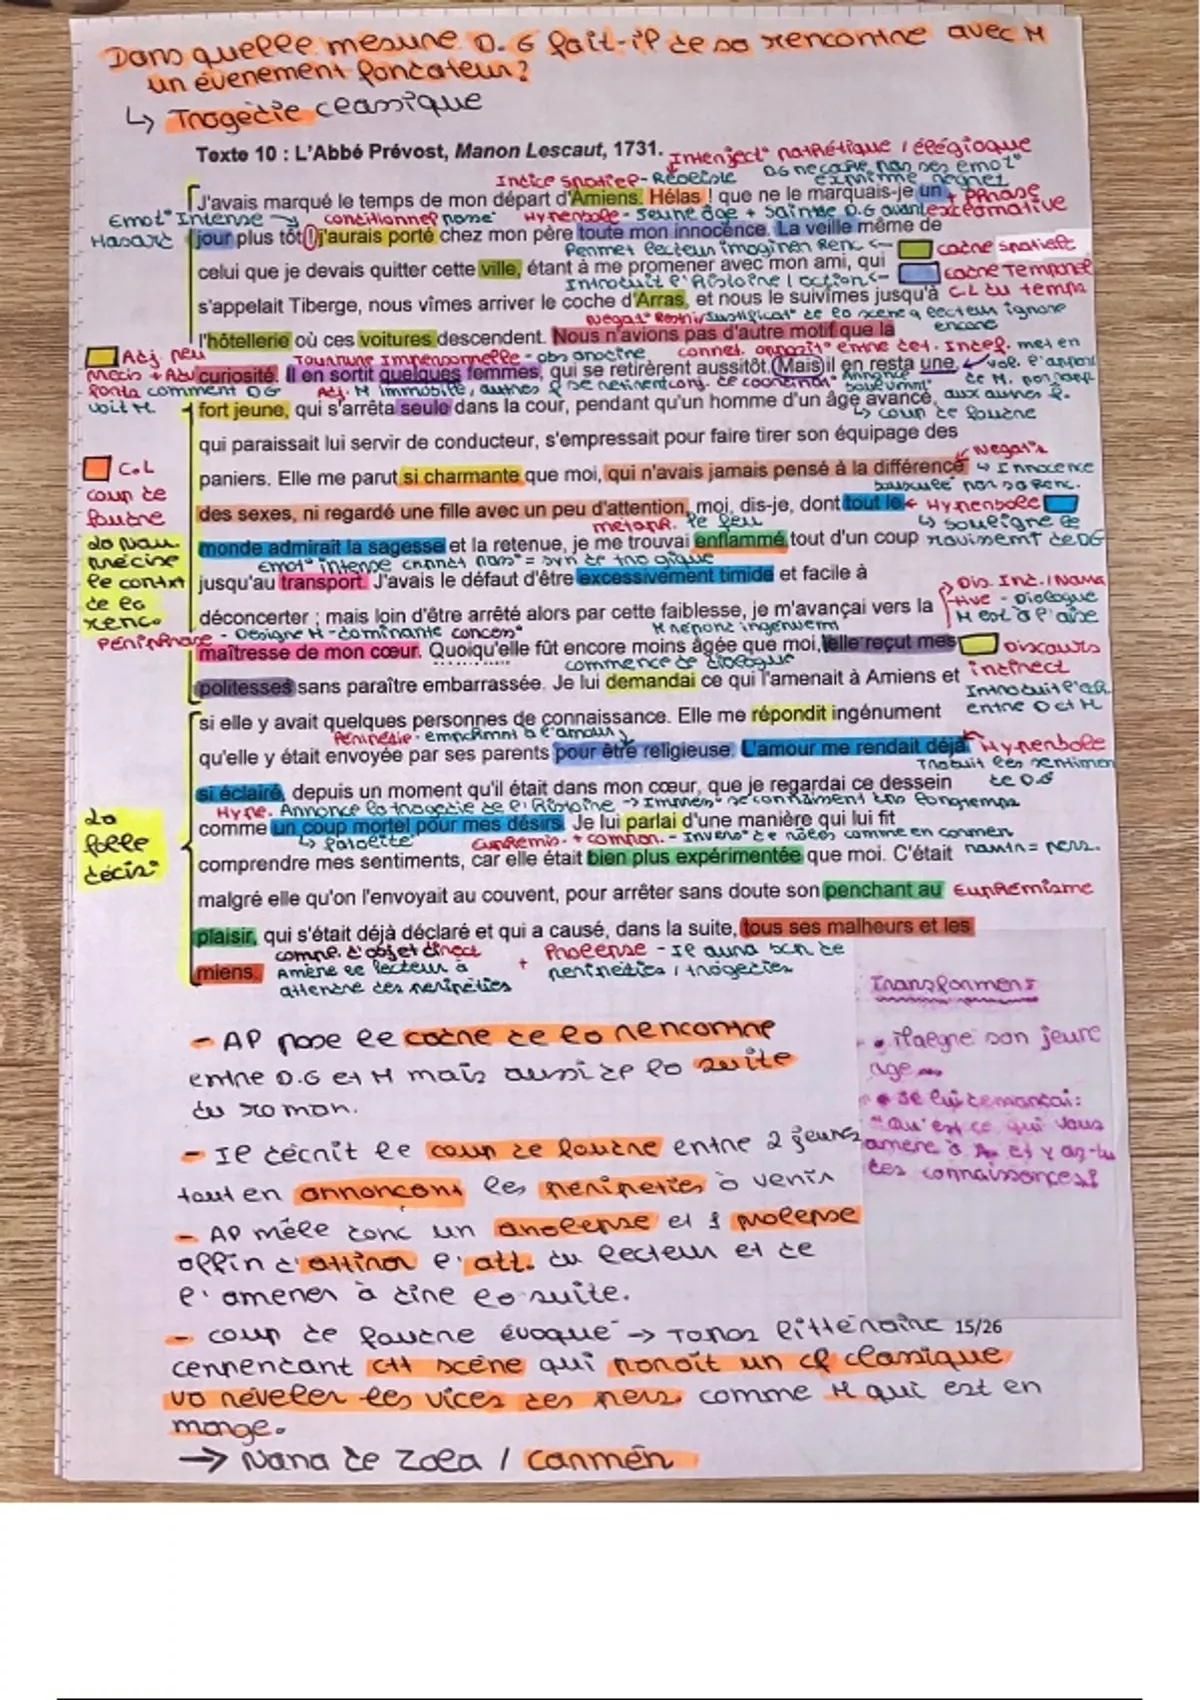 Dans quelle mesure D.G fait-il de sa rencontre avec M
un évenement fondateur?
↳ Tragédie classique
Texte 10 : L'Abbé Prévost, Manon Lescaut, 1731.
Interject° pathétique / élégiaque
Indice spatiel - Réaliste
DG ne cache pas ses emot°
exprime regret
J'avais marqué le temps de mon départ d'Amiens. Hélas ! que ne le marquais-je un
+ Phrase
exclamative
Emot° Intense
conditionnel passé
Hyperbole - Jeune âge + Sainte D.G avant
Hasard
jour plus tôt ! j'aurais porté chez mon père toute mon innocence. La veille même de
Permet lecteur imaginer Renc
cadre spatiel
celui que je devais quitter cette ville, étant à me promener avec mon ami, qui
cadre Temporel
C.L du temps
Introduit l'Histoire / action
s'appelait Tiberge, nous vîmes arriver le coche d'Arras, et nous le suivîmes jusqu'à
Negat° Restric/Justificat° de la scène q lecteur ignore
encore
l'hôtellerie où ces voitures descendent. Nous n'avions pas d'autre motif que la
Adj. peu
précis + Adv
Tournure Impersonnelle - obs anodine
connet. opposit° entre det. Indef. met en
curiosité. Il en sortit quelques femmes, qui se retirèrent aussitôt. Mais il en resta une,
val. l'appar
de M. par rapp
aux autres f.
porta comment DG
voit M
Adj. M immobile, autres f se retirent
conj. de coordinat°
Annonce
↳ coup de foudre
fort jeune, qui s'arrêta seule dans la cour, pendant qu'un homme d'un âge avancé,
qui paraissait lui servir de conducteur, s'empressait pour faire tirer son équipage des
C.L
coup de
foudre
Negat°
paniers. Elle me parut si charmante que moi, qui n'avais jamais pensé à la différence
↳ Innocence
bousculé par sa Renc.
des sexes, ni regardé une fille avec un peu d'attention, moi, dis-je, dont tout le
Hyperbole
métaph. le feu
↳ souligne le
ravissemt de DG
monde admirait la sagesse et la retenue, je me trouvai enflammé tout d'un coup
Nar.
précise
le contxt
de la
renc.
Emot° intense = syn de tragique
jusqu'au transport. J'avais le défaut d'être excessivement timide et facile à
Dis. Ind. / Narra
-tive - Dialogue
M est à l'aise
déconcerter ; mais loin d'être arrêté alors par cette faiblesse, je m'avançai vers la
Périphrase - Désigne M - dominante
concess°
M répond ingénumt
maîtresse de mon cœur. Quoiqu'elle fût encore moins âgée que moi, elle reçut mes
Discours
indirect
commence le dialogue
politesses sans paraître embarrassée. Je lui demandai ce qui l'amenait à Amiens et
Introduit l'
entre D et M
si elle y avait quelques personnes de connaissance. Elle me répondit ingénument
Péripétie - empêchmt à l'amour
qu'elle y était envoyée par ses parents pour être religieuse. L'amour me rendait déjà
Hyperbole
Traduit les sentimen
de D.G
si éclairé, depuis un moment qu'il était dans mon cœur, que je regardai ce dessein
Hype. Annonce la tragédie de l'Histoire → Impress° se connaissent dps longtemps
comme un coup mortel pour mes désirs. Je lui parlai d'une manière qui lui fit
la
folle
décis°
↳ fatalité
Euphémis. + compar. - Invers° de rôles comme en Carmen
comprendre mes sentiments, car elle était bien plus expérimentée que moi. C'était
malgré elle qu'on l'envoyait au couvent, pour arrêter sans doute son penchant au
Euphémisme
plaisir, qui s'était déjà déclaré et qui a causé, dans la suite, tous ses malheurs et les
compl. d'objet direct
+ Prolepse - Il aura bcp de
péripéties / tragédies
miens.
Amène le lecteur à
attendre des péripéties
- AP pose le cadre de la rencontre
entre D.G et M mais aussi de la suite
du roman.
- Il décrit le coup de foudre entre 2 jeunes
tout en annonçant les péripéties à venir
- AP mêle donc un analepse et 1 prolepse
affin d'attirer l'att. du lecteur et de
l'amener à dire la suite.
- coup de foudre évoqué → Topos littéraire
15/26
cependant ctt scène qui paraît un cf classique
va révéler les vices des pers. comme M qui est en
marge.
→ Nana de Zola / Carmen
Transformens
• son jeune
age
• Je lui demandai:
"Qu'est ce qui vous
amène à A. et y
des connaissances?